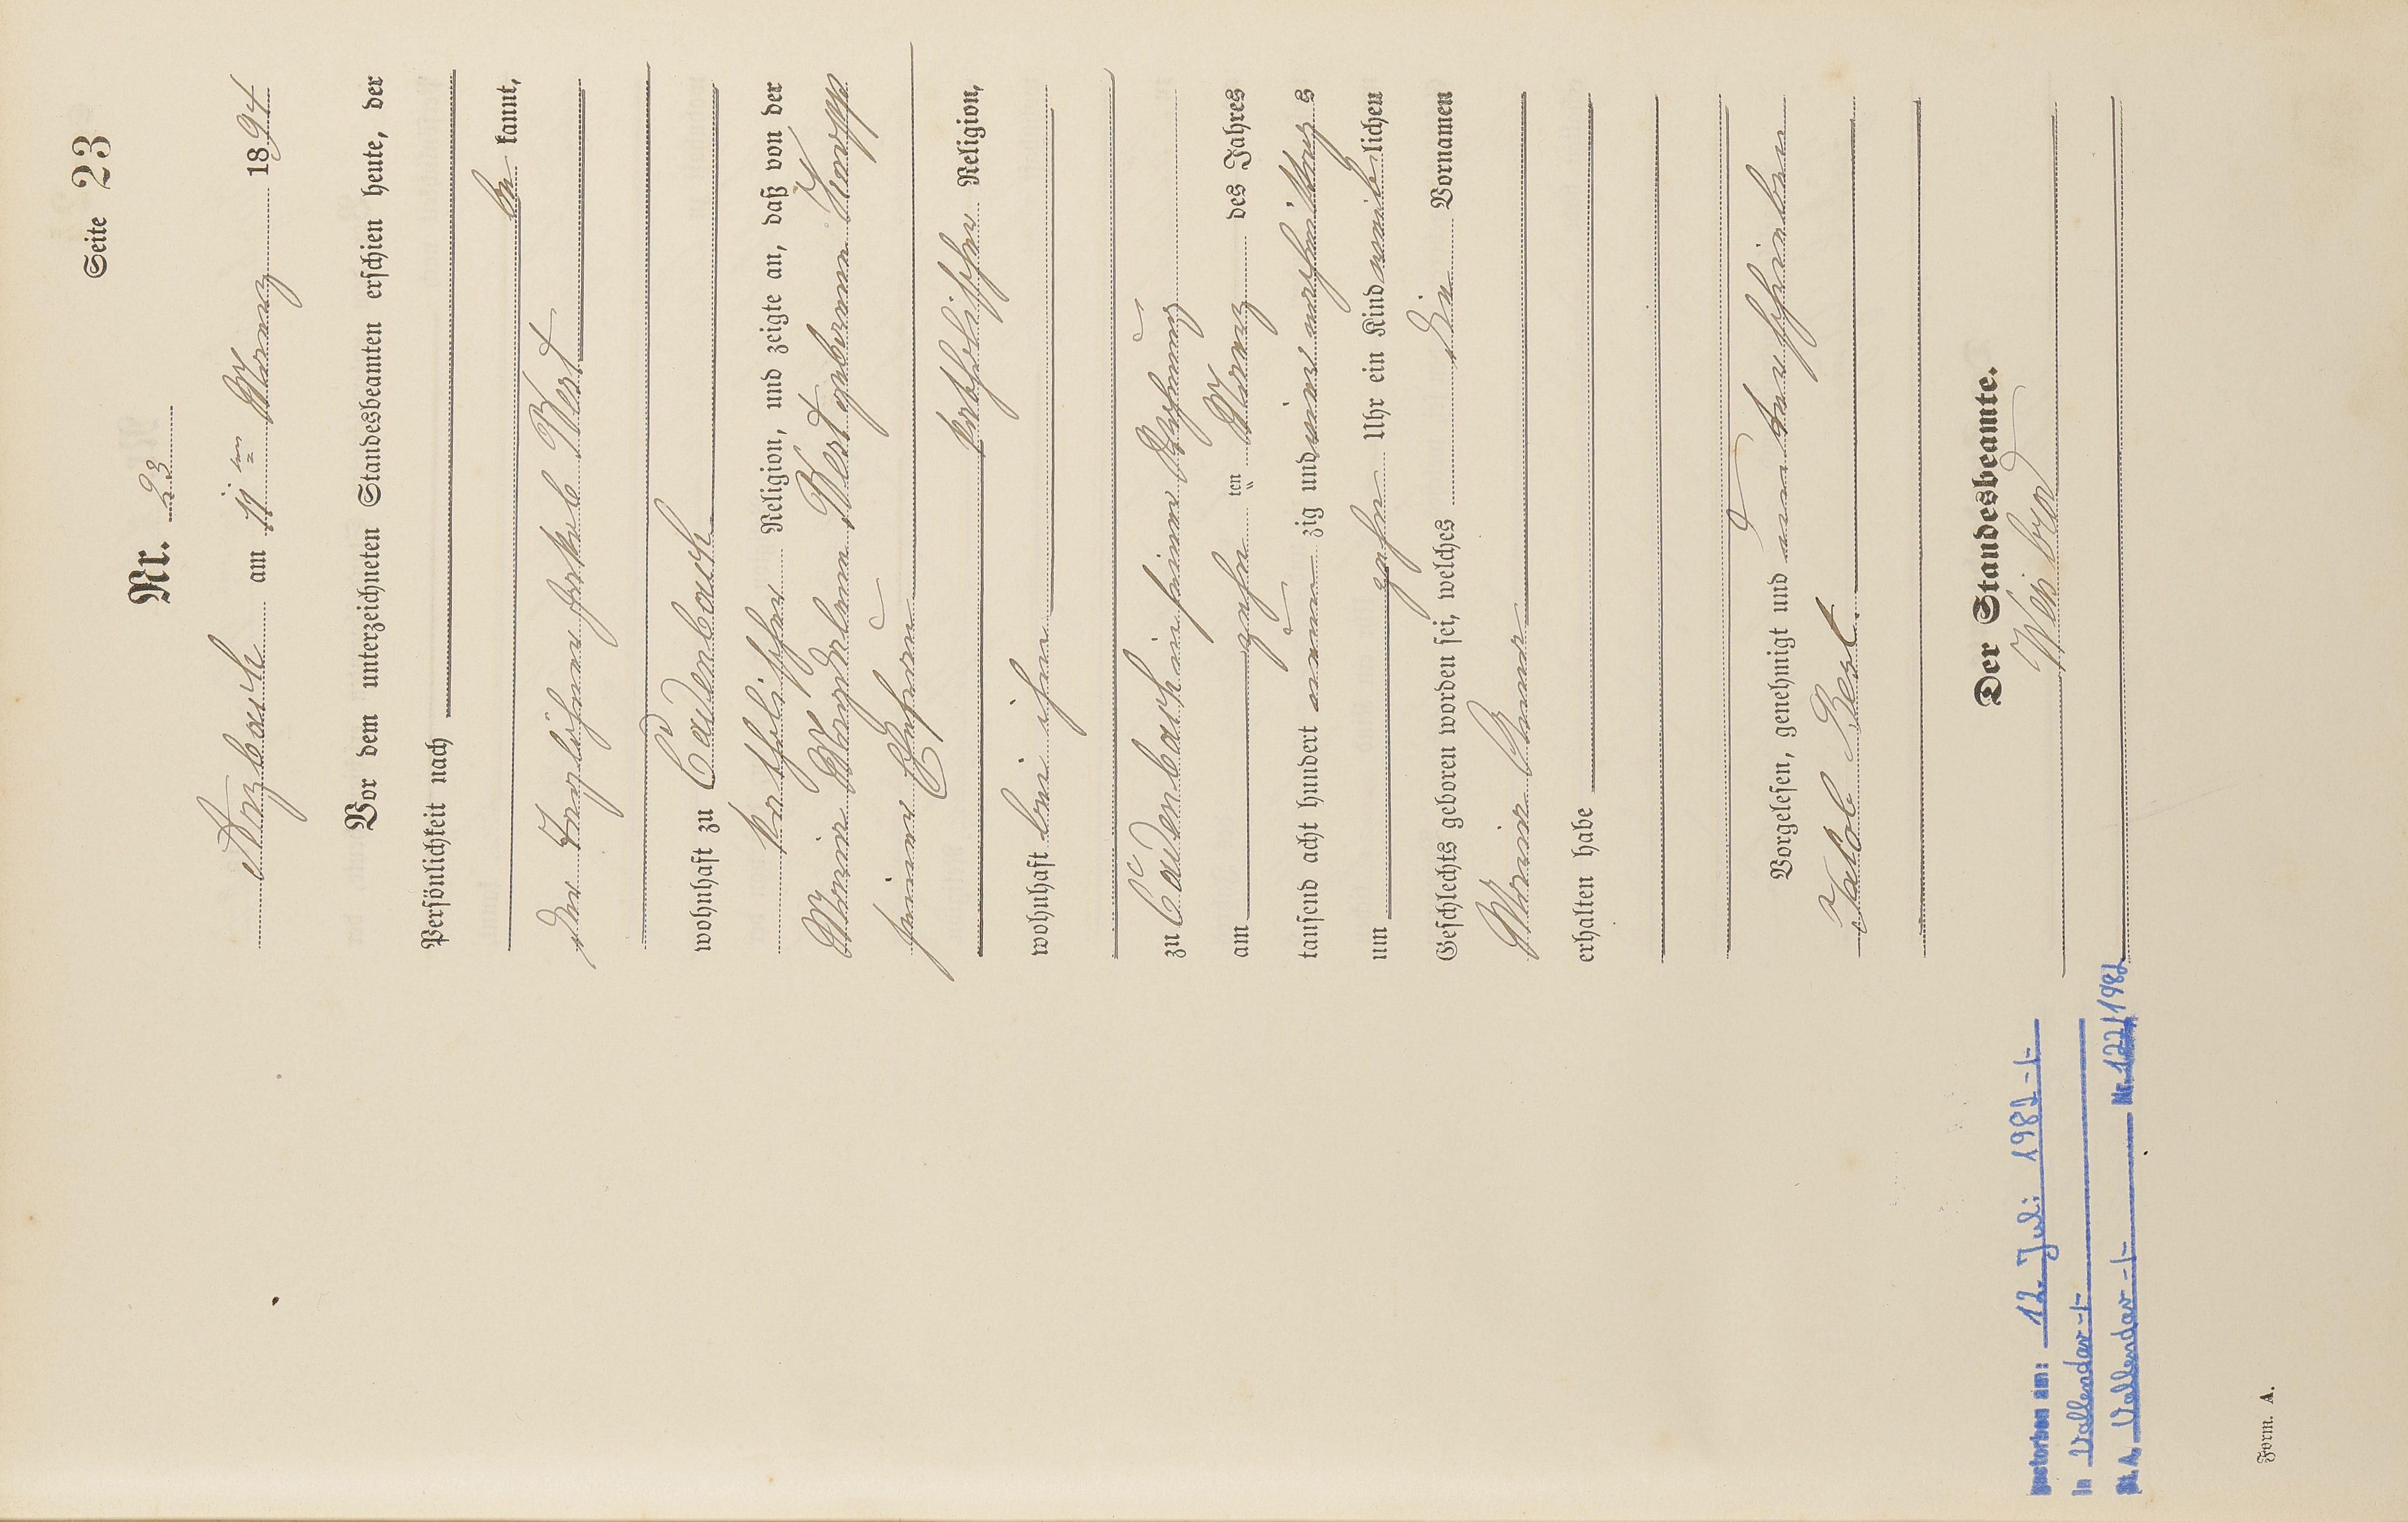 Seite 23
Nr. 23
Arzbach am 11ten März 1894
Vor dem unterzeichneten Standesbeamten erschien heute, der
Persönlichkeit nach
be kannt,
der Taglöhner Jakob Best
wohnhaft zu Cadenbach
katholischer Religion, und zeigte an, daß von der
Maria Magdalena Best geborenen Knopp
seiner Ehefrau
katholischer Religion,
wohnhaft bei ihm
zu Cadenbach in seiner Wohnung
am zehn ten März des Jahres
tausend acht hundert neun zig und vier nachmittags
um zehn Uhr ein Kind weiblichen
Geschlechts geboren worden sei, welches die Vornamen
Maria Anna
erhalten habe
Vorgelesen, genehmigt und unterschrieben
Jakob Best
Der Standesbeamte.
gestorben am: 12. Juli 1982 -/-
in Vallendar -/-
St.A. Vallendar -/- Nr. 122/1982
Form. A.